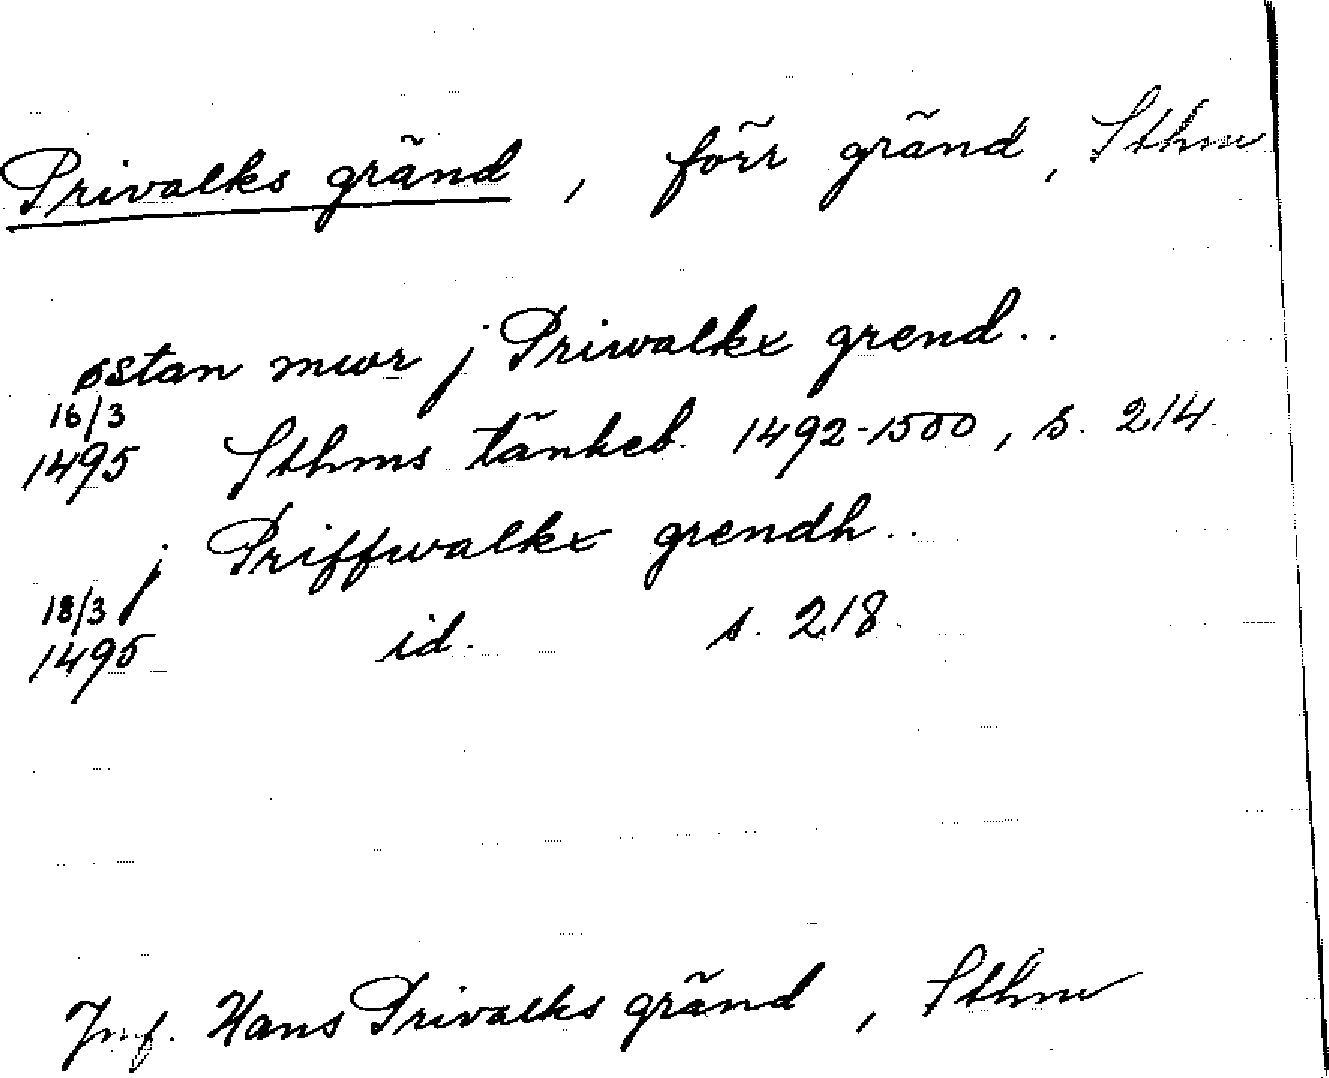 Privalks gränd, förr gränd, Sthm
østan mwr j Priwalkx grend..
16/3
1495 Sthms tänkeb. 1492-1500, s. 214.
j Priffwalkx grendh..
18/3
1495 id. s. 218.
Jmf. Hans Privalks gränd, Sthm